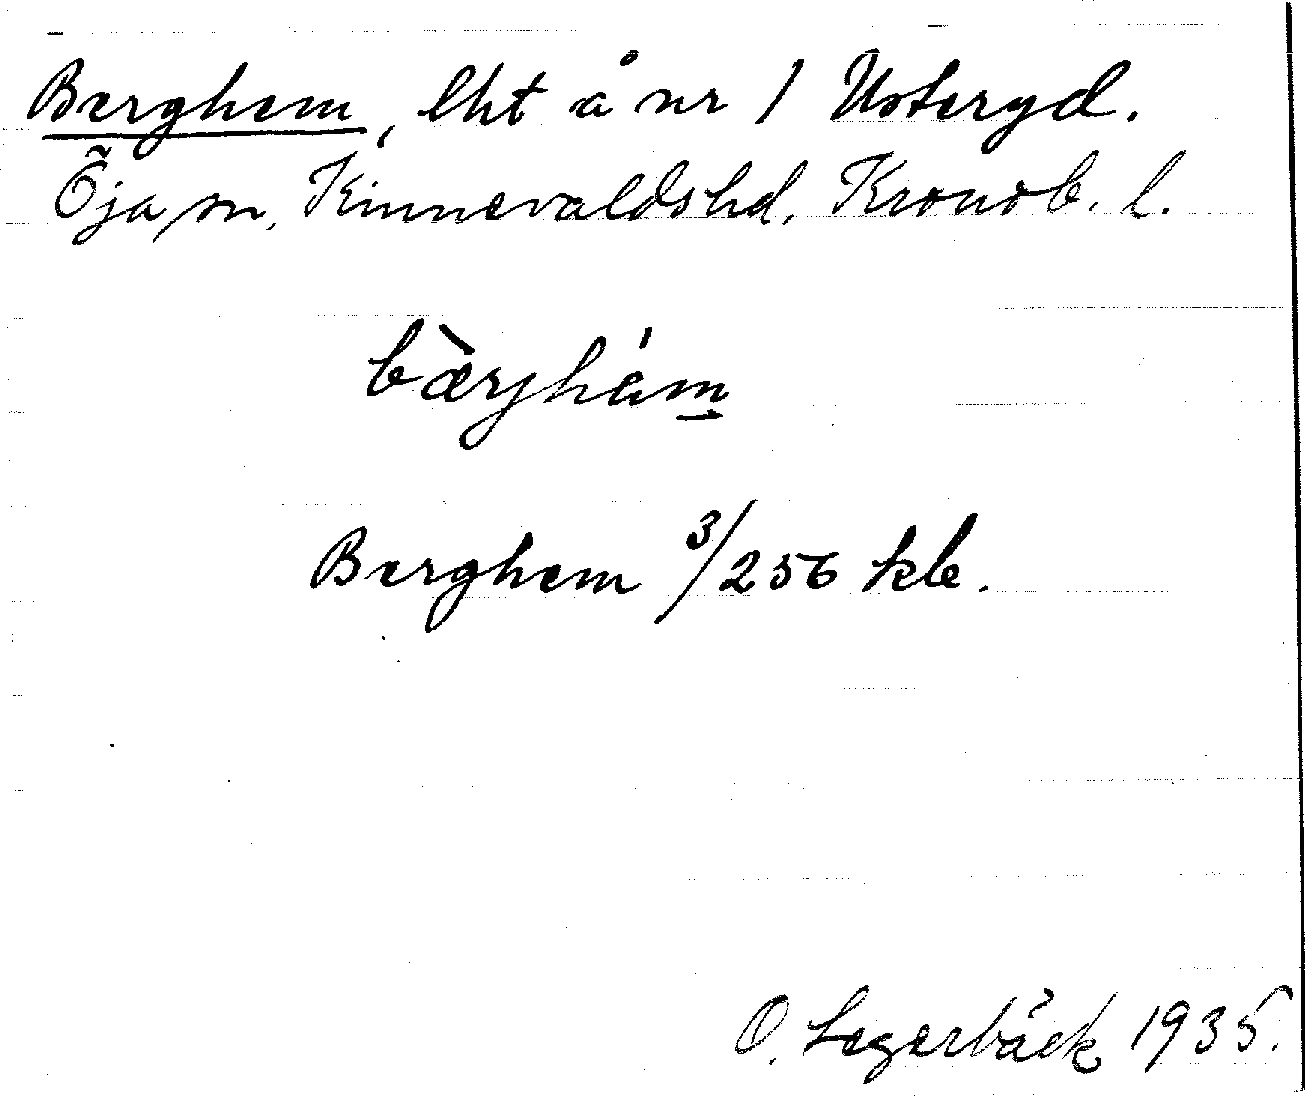 Berghem, lht å nr 1 Usteryd.
Öja sn, Kinnevalds hd. Kronob. l.
bæ̀rjhám
Berghem 3/256 kb.
O. Legerbäck 1935.